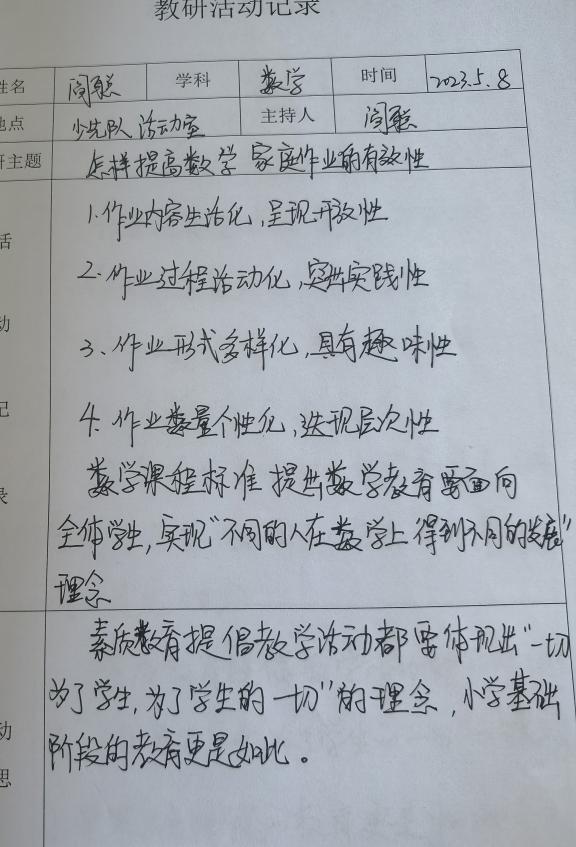 教研活动记录
姓名 阎聪 学科 数学 时间 2023.5.8
地点 少先队活动室 主持人 阎聪
研主题 怎样提高数学家庭作业的有效性
1.作业内容生活化,呈现开放性
2.作业过程活动化、突出实践性
3、作业形式多样化,具有趣味性
4.作业数量个性化,送现层次性
数学课程标准提出数学教育要面向
全体学生,实现"不同的人在数学上得到不同的发展"
理念
活
动
记
录
素质教育提倡教学活动都要体现出"一切
为了学生,为了学生的一切"的理念,小学基础
阶段的教育更是如此。
动
思